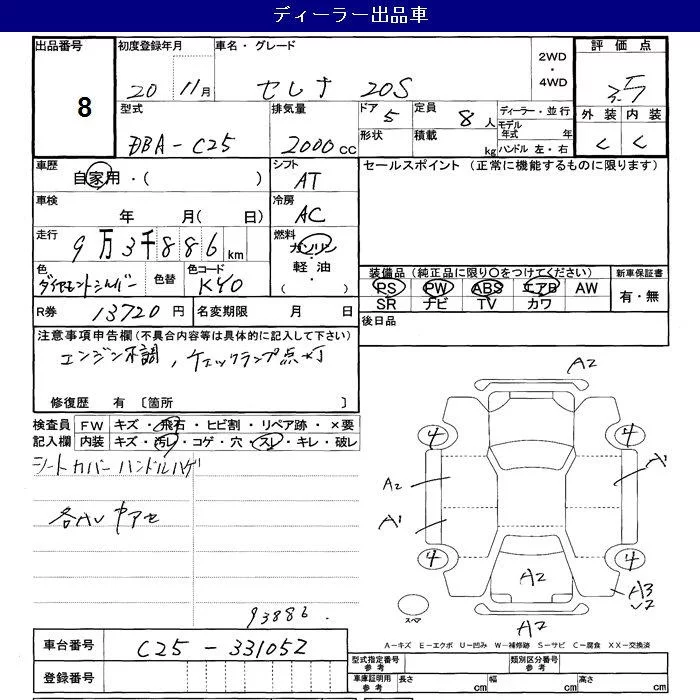 ディーラー出品車
出品番号 8
初度登録年月 20年 11月
車名・グレード セレナ 20S
2WD・4WD
評価点 3.5
外装 C 内装 C
型式 DBA-C25
排気量 2000cc
ドア 5 形状
定員 8人 積載 kg
ディーラー・並行
モデル年式 年
ハンドル 左・右
車歴 自家用・( )
シフト AT
セールスポイント (正常に機能するものに限ります)
車検 年 月( 日)
冷房 AC
走行 9万3千886km
燃料 ガソリン・軽油・( )
色 ダイヤモンドシルバー 色替 色コード KY0
装備品(純正品に限り○をつけてください)
PS PW ABS エアB AW
SR ナビ TV カワ
新車保証書 有・無
R券 13720円 名変期限 月 日
後日品
注意事項申告欄(不具合内容等は具体的に記入して下さい)
エンジン不調,チェックランプ点灯
修復歴 有〔箇所 〕
検査員記入欄
FW キズ・飛石・ヒビ割・リペア跡・×要
内装 キズ・汚レ・コゲ・穴・スレ・キレ・破レ
シートカバー ハンドルハゲ
93886.
A2
4 4
A2
A1
4 4
A2
A3
A2
スペア
A-キズ E-エクボ U-凹み W-補修跡 S-サビ C-腐食 XX-交換済
車台番号 C25-331052
登録番号
型式指定番号 参考 類別区分番号 参考
車庫証明用 参考 長さ cm 幅 cm 高さ cm